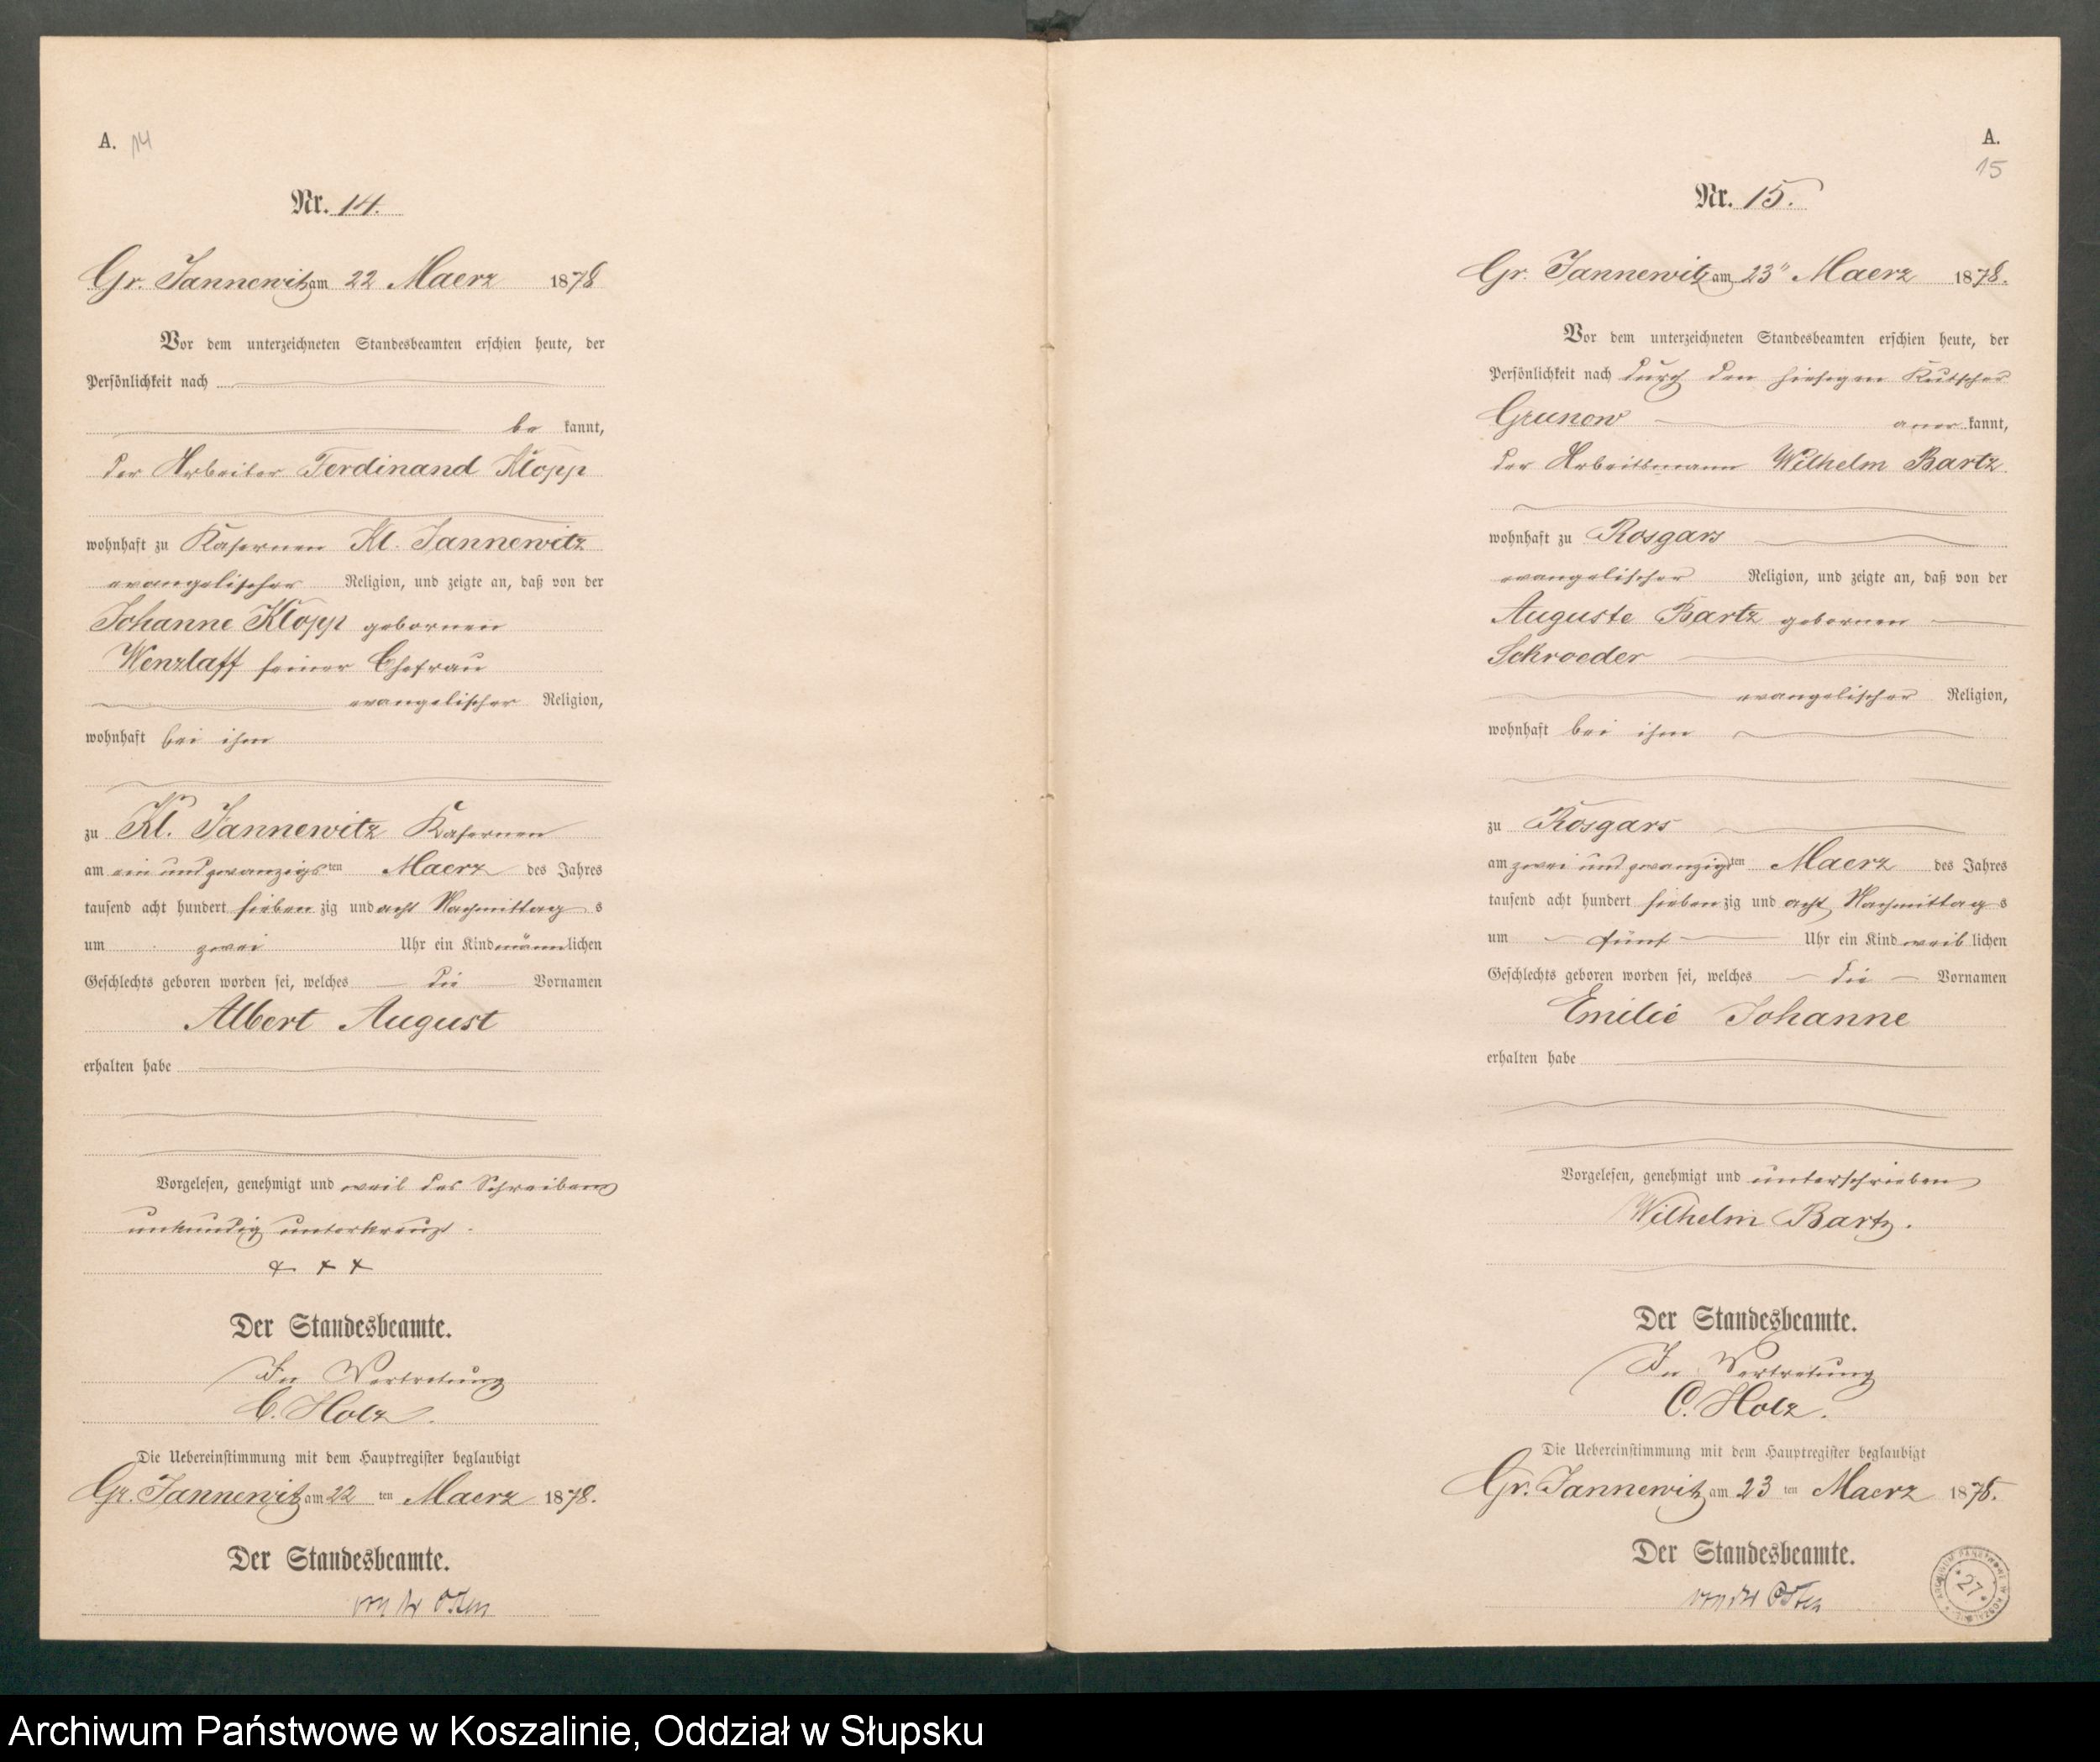 A. 14
Nr. 14.
Gr. Jannewitz am 22 Maerz 1878
Vor dem unterzeichneten Standesbeamten erschien heute, der
Persönlichkeit nach
be kannt,
der Arbeiter Ferdinand Klopp
wohnhaft zu Kasernen Kl. Jannewitz
evangelischer Religion, und zeigte an, daß von der
Johanne Klopp gebornen
Wenzlaff seiner Ehefrau
evangelischer Religion,
wohnhaft bei ihm
zu Kl. Jannewitz Kasernen
am ein und zwanzigsten Maerz des Jahres
tausend acht hundert sieben zig und acht Nachmittag s
um zwei Uhr ein Kind männlichen
Geschlechts geboren worden sei, welches die Vornamen
Albert August
erhalten habe
Vorgelesen, genehmigt und weil des Schreibens
unkundig unterkreuzt.
+ + +
Der Standesbeamte.
In Vertretung
C. Holz.
Die Uebereinstimmung mit dem Hauptregister beglaubigt
Gr. Jannewitz am 22 ten Maerz 1878.
Der Standesbeamte.
von der Osten
A.
15
Nr. 15.
Gr. Jannewitz am 23" Maerz 1878.
Vor dem unterzeichneten Standesbeamten erschien heute, der
Persönlichkeit nach durch den hiesigen Kutscher
Grunow aner kannt,
der Arbeitsmann Wilhelm Bartz
wohnhaft zu Rosgars
evangelischer Religion, und zeigte an, daß von der
Auguste Bartz gebornen
Schroeder
evangelischer Religion,
wohnhaft bei ihm
zu Rosgars
am zwei und zwanzigsten Maerz des Jahres
tausend acht hundert sieben zig und acht Nachmittag s
um fünf Uhr ein Kind weib lichen
Geschlechts geboren worden sei, welches die Vornamen
Emilie Johanne
erhalten habe
Vorgelesen, genehmigt und unterschrieben
Wilhelm Bartz.
Der Standesbeamte.
In Vertretung
C. Holz.
Die Uebereinstimmung mit dem Hauptregister beglaubigt
Gr. Jannewitz am 23 ten Maerz 1878.
Der Standesbeamte.
von der Osten
ARCHIWUM PAŃSTWOWE W KOSZALINIE
* 27 *
Archiwum Państwowe w Koszalinie, Oddział w Słupsku